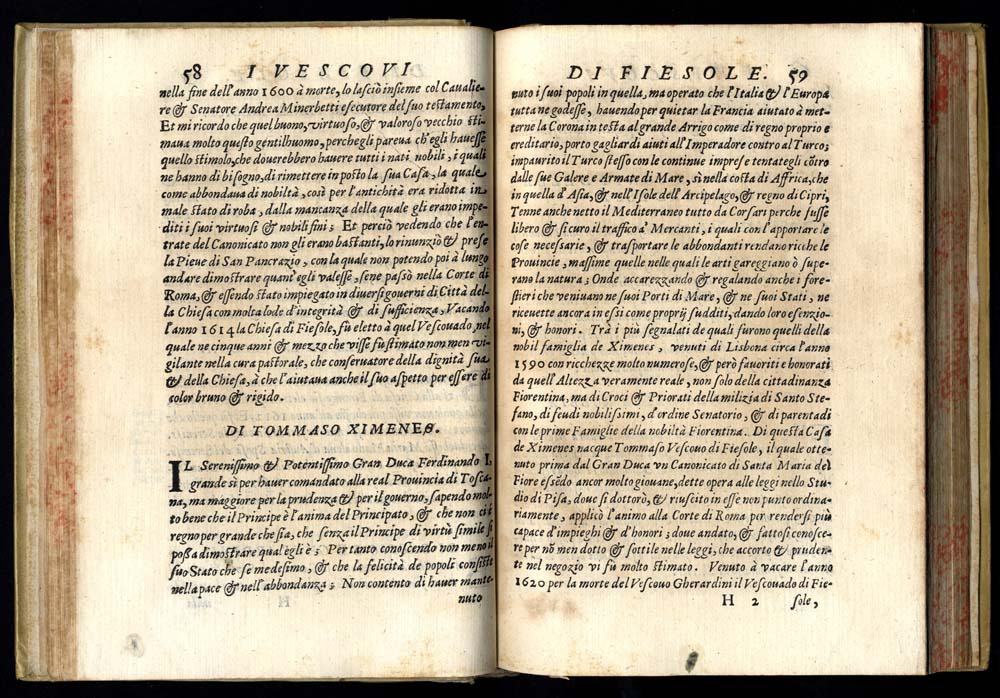 58 I VESCOVI
nella fine dell'anno 1600 à morte, lo lasciò insieme col Cavalie-
re & Senatore Andrea Minerbetti esecutore del suo testamento,
Et mi ricordo che quel buono, virtuoso, & valoroso vecchio sti-
maua molto questo gentilhuomo, perchegli pareva ch'egli hauesse
quello stimolo, che douerebbero hauere tutti i nati nobili, i quali
ne hanno di bisogno, di rimettere in posto la sua Casa, la quale
come abbondaua di nobiltà, così per l'antichità era ridotta in
male stato di roba, dalla mancanza della quale gli erano impe-
diti i suoi virtuosi & nobili fini; Et perciò vedendo che l'en-
trate del Canonicato non gli erano bastanti, lo rinunziò & prese
la Pieue di San Pancrazio, con la quale non potendo poi à lungo
andare dimostrare quant'egli valesse, sene passò nella Corte di
Roma, & essendo stato impiegato in diuersi gouerni di Città del-
la Chiesa con molta lode d'integrità & di sufficienza, Vacando
l'anno 1614 la Chiesa di Fiesole, fù eletto à quel Vescouado, nel
quale ne cinque anni & mezzo che visse fù stimato non men vi-
gilante nella cura pastorale, che conseruatore della dignità sua
& della Chiesa, à che l'aiutaua anche il suo aspetto per essere di
color bruno & rigido.
DI TOMMASO XIMENES.
IL Serenissimo & Potentissimo Gran Duca Ferdinando I,
grande sì per hauer comandato alla real Prouincia di Tosca-
na, ma maggiore per la prudenza & per il gouerno, sapendo mol-
to bene che il Principe è l'anima del Principato, & che non ci è
regno per grande che sia, che senza il Principe di virtù simile si
possa dimostrare qual egli è; Per tanto conoscendo non meno il
suo Stato che se medesimo, & che la felicità de popoli consiste
nella pace & nell'abbondanza; Non contento di hauer mante-
nuto
DI FIESOLE. 59
nuto i suoi popoli in quella, ma operato che l'Italia & l'Europa
tutta ne godesse, hauendo per quietar la Francia aiutato à met-
terne la Corona in testa al grande Arrigo come di regno proprio e
ereditario, porto gagliardi aiuti all'Imperadore contro al Turco;
impaurito il Turco stesso con le continue imprese tentategli cōtro
dalle sue Galere e Armate di Mare, sì nella costa di Affrica, che
in quella d'Asia, & nell'Isole dell'Arcipelago, & regno di Cipri,
Tenne anche netto il Mediterraneo tutto da Corsari perche fusse
libero & sicuro il traffico a' Mercanti, i quali con l'apportare le
cose necesarie, & trasportare le abbondanti rendano ricche le
Prouincie, massime quelle nelle quali le arti gareggiano ò supe-
rano la natura; Onde accarezzando & regalando anche i fore-
stieri che veniuano ne suoi Porti di Mare, & ne suoi Stati, ne
riceuette ancora in essi come proprij sudditi, dando loro esenzio-
ni, & honori. Trà i più segnalati de quali furono quelli della
nobil famiglia de Ximenes, venuti di Lisbona circa l'anno
1590 con ricchezze molto numerose, & però fauoriti e honorati
da quell'Altezza veramente reale, non solo della cittadinanza
Fiorentina, ma di Croci & Priorati della milizia di Santo Ste-
fano, di feudi nobilissimi, d'ordine Senatorio, & di parentadi
con le prime Famiglie della nobiltà Fiorentina. Di questa Casa
de Ximenes nacque Tommaso Vescouo di Fiesole, il quale otte-
nuto prima dal Gran Duca vn Canonicato di Santa Maria del
Fiore essēdo ancor molto giouane, dette opera alle leggi nello Stu-
dio di Pisa, doue si dottorò, & riuscito in esse non punto ordina-
riamente, applicò l'animo alla Corte di Roma per rendersi più
capace d'impieghi & d'honori; doue andato, & fattosi conosce-
re per nō men dotto & sottile nelle leggi, che accorto & pruden-
te nel negozio vi fù molto stimato. Venuto à vacare l'anno
1620 per la morte del Vescouo Gherardini il Vescouado di Fie-
H 2 sole,